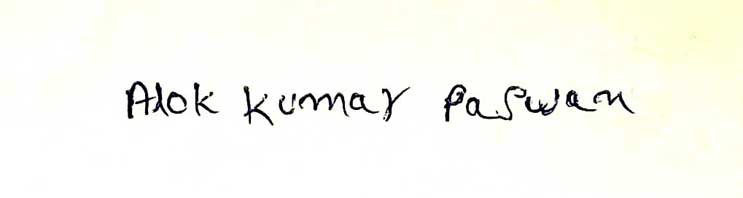 Alok Kumar Paswan